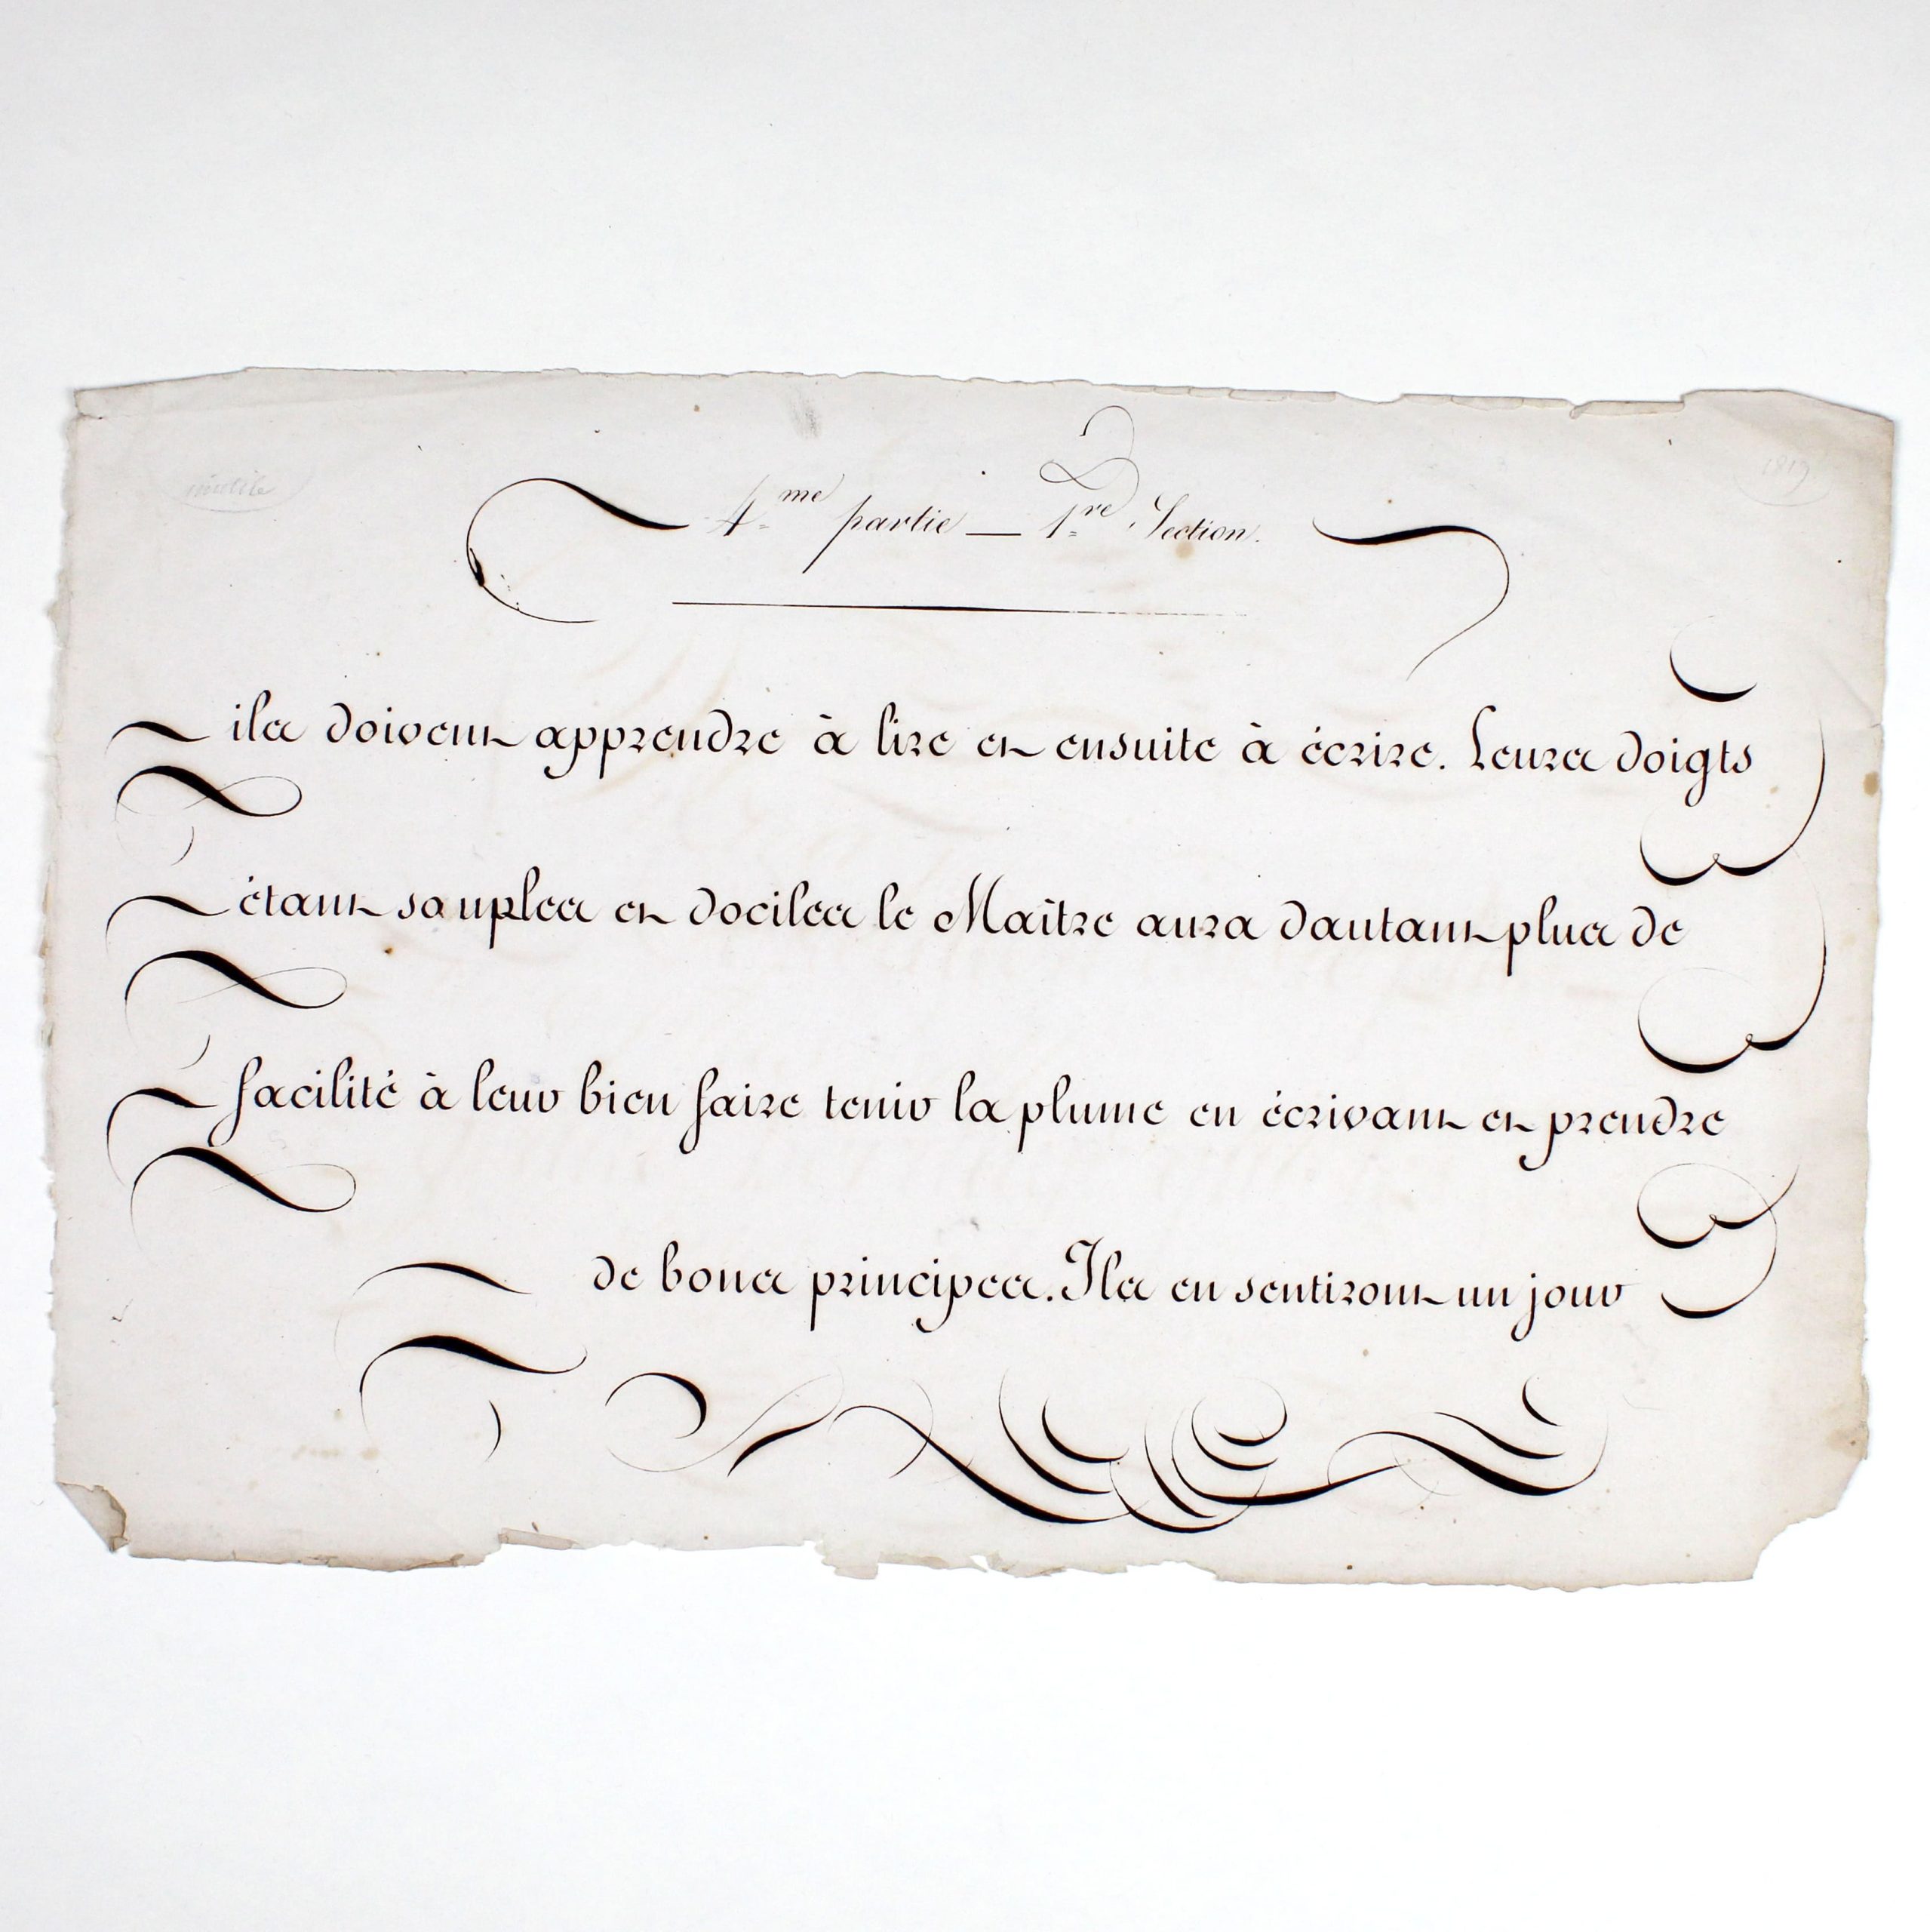 inutile
1819
4me partie — 1re Section.
ils doivent apprendre à lire et ensuite à écrire. Leurs doigts
étant souples et dociles le Maître aura dautant plus de
facilité à leur bien faire tenir la plume en écrivant et prendre
de bons principes. Ils en sentiront un jour